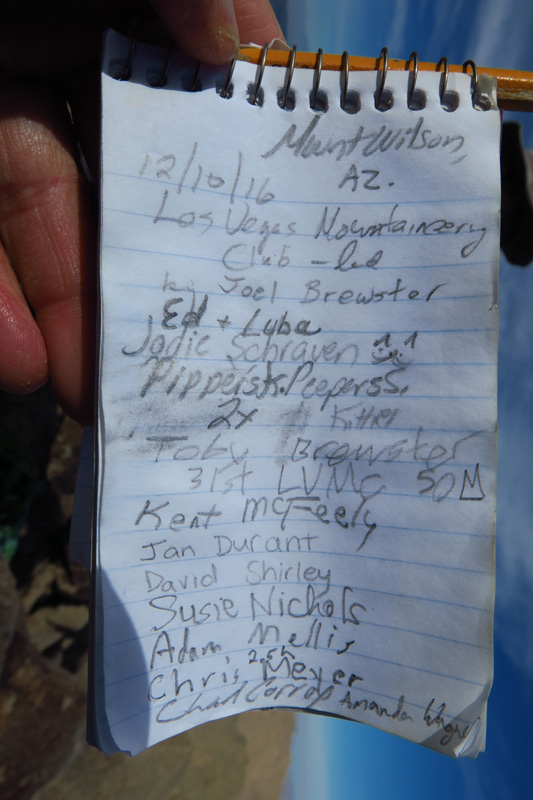 Mount Wilson,
12/10/16 AZ.
Las Vegas Mountaineery
Club - led
by Joel Brewster
Ed + Lyba
Jodie Schraven
PippersK. PeepersS.
2x
Toby Brewster
31st LVMC 50
Kent McFeely
Jan Durant
David Shirley
Susie Nichols
Adam Mellis
Chris Meyer
Chad Amanda